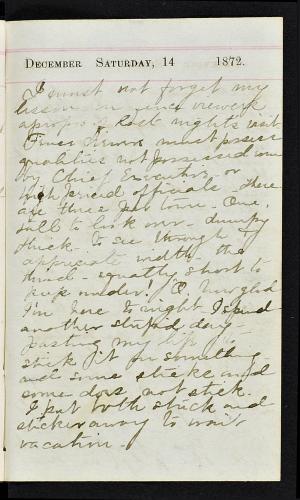 DECEMBER SATURDAY, 14 1872.
I must not forget my
lesson in fence viewers
apropos of last night's visit
Fence viewers must possess
qualities not possessed even
by Chief Executives or
high priced officials - There
are three per town - One,
tall to look over - dumpy
thick - to see through of
appropriate width - the
third - equally short to
peep under! O
I'm here to-night - Spend
another stupid day -
Pasting my
stick it on something
and some sticks and
some does not stick.
I put both stick and
sticker away to wait
vacation -